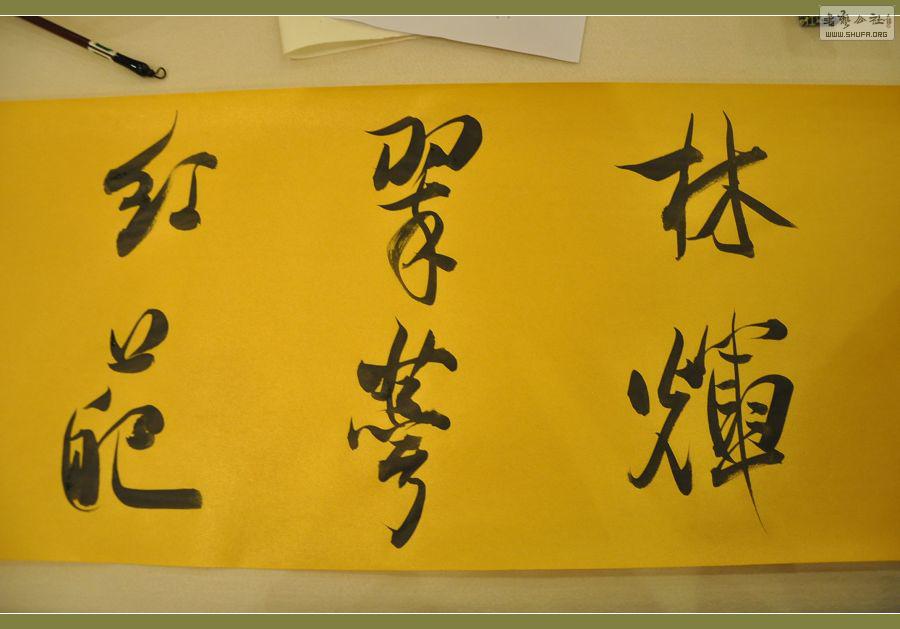 林輝
翠萼
红葩
書藝公社
WWW.SHUFA.ORG